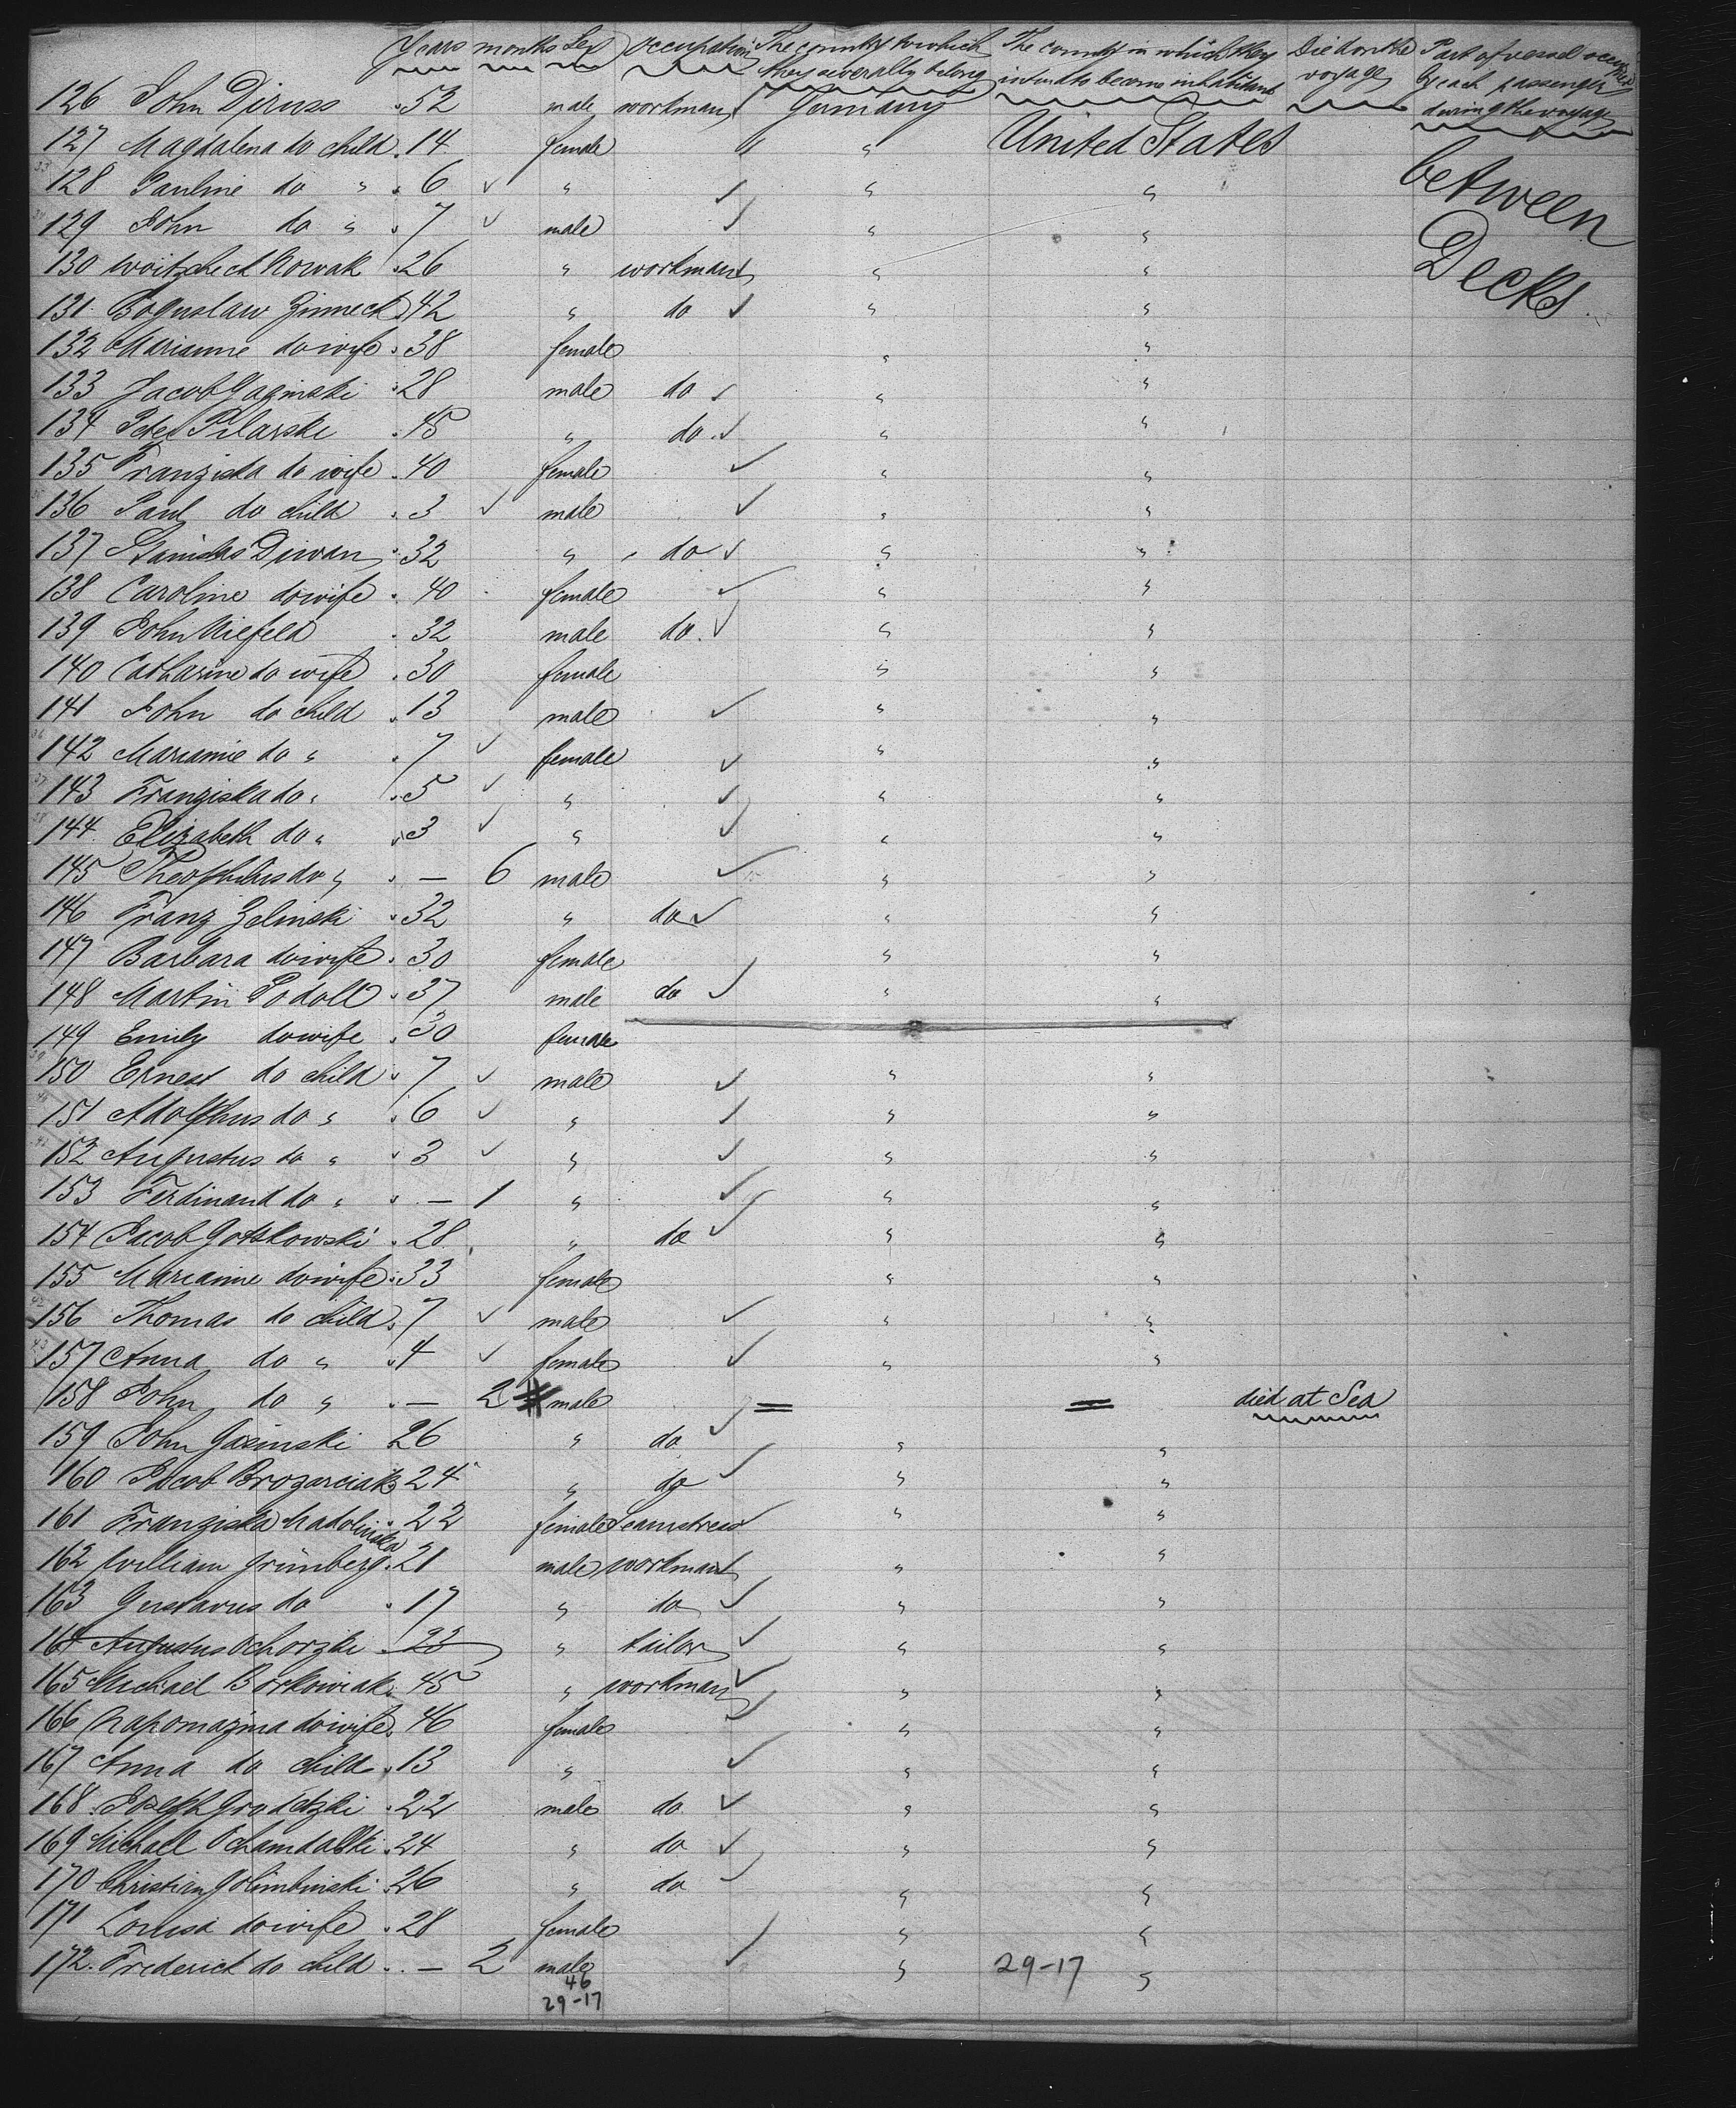 Years months Sex Occupation The country to which they severally belong The country in which they intend to become inhabitants Died on the voyage Part of vessel occupied by each passenger during the voyage
126 John Diruss 52 male workman Germany
127 Magdalena do child 14 female " " United States
128 Pauline do " 6 " " "
129 John do " 7 male " "
between
130 Woitzcheck Nowak 26 " workman " "
Decks
131 Boguslaw Zinneck 42 " do " "
132 Marianne do wife 38 female " "
133 Jacob Gaginski 28 male do " "
134 Peter Pilarski 45 " do " "
135 Franziska do wife 40 female " "
136 Paul do child 3 male " "
137 Stanislas Diwan 32 " do " "
138 Caroline do wife 40 female " "
139 John Niefeld 32 male do " "
140 Catharine do wife 30 female " "
141 John do child 13 male " "
142 Marianne do " 7 female " "
143 Franziska do " 5 " " "
144 Elizabeth do " 3 " " "
145 Theophilus do " — 6 male " "
146 Franz Zelinski 32 " do " "
147 Barbara do wife 30 female " "
148 Martin Podoll 37 male do " "
149 Emily do wife 30 female
150 Ernest do child 7 male " "
151 Adolphus do " 6 " " "
152 Augustus do " 3 " " "
153 Ferdinand do " — 1 " " "
154 Jacob Gotskowski 28 " do " "
155 Marianne do wife 33 female " "
156 Thomas do child 7 male " "
157 Anna do " 4 female " "
158 John do " — 2 male = = died at Sea
159 John Gasinski 26 " do " "
160 Jacob Brozarciak 24 " do " "
161 Franziska Madolinska 22 female Seamstress " "
162 William Grünberg 21 male workman " "
163 Gustavus do 17 " do " "
164 Augustus Ochorzki 23 " tailor " "
165 Michael Borkowiak 45 " workman " "
166 Napomazina do wife 46 female " "
167 Anna do child 13 " " "
168 Joseph Grodetzki 22 male do " "
169 Michael Schamdalski 24 " do " "
170 Christian Golimbinski 26 " do " "
171 Louisa do wife 28 female " "
172 Frederick do child — 2 male " 29-17 "
46
29-17